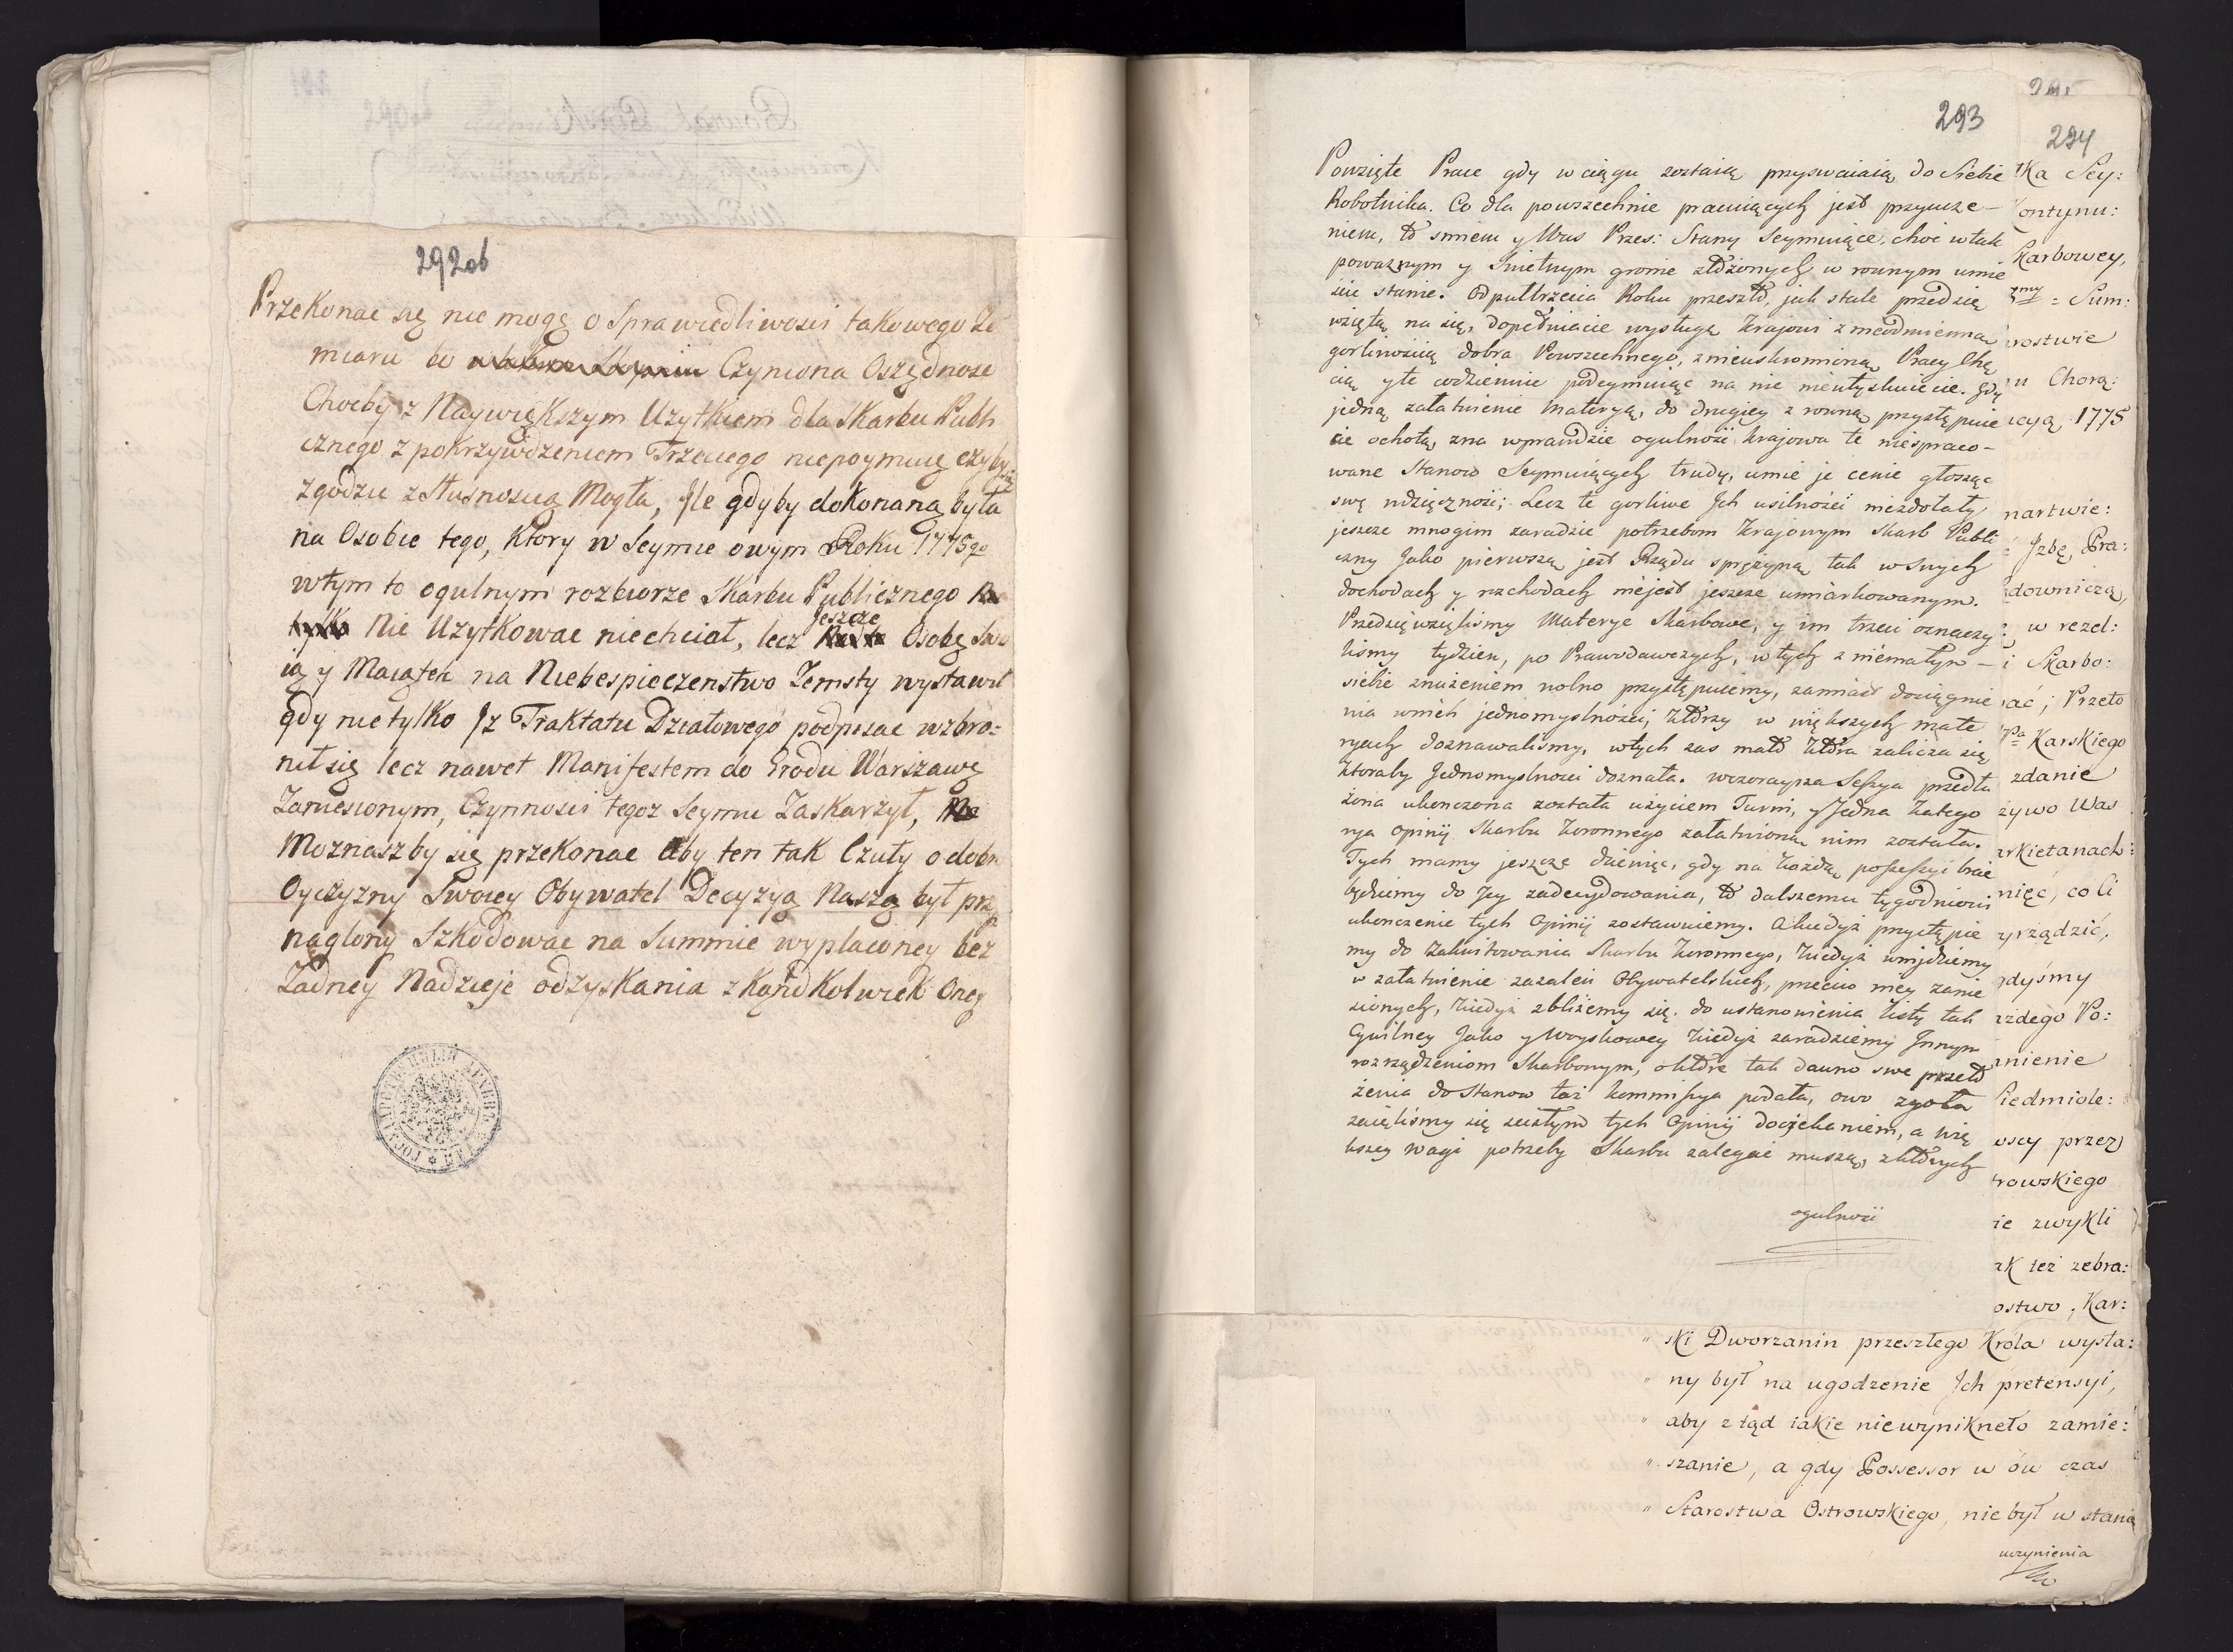 292ob
Przekonac się nie mogę o Sprawiedliwosci takowego Za
miaru bo Czyniona Oszzędnosc
Chocby z Naywiękzym Uzytkiem dla Skarbu Publi
cznego z pokrzywdzeniem Trzeciego niepoymuię czyby
zgodzic z słusnoscią Mogła, Ile gdyby dokonaną była
na Osobie tego, Ktory w Seymie owym Roku 1775go
w tym to ogulnym rozbiorze Skarbu Publicznego
Nie Uzytkowac niechciał, lecz Jeszcze Osobę Swo
ią y Maiątek na Niebespieczenstwo Zemsty wystawił
gdy nie tylko Iz Traktatu Działowego podpisac wzbro=
nił się lecz nawet Manifestem do Grodu Warszawę
Zaniesionym, Czynnosci tegoz Seymu Zaskarzył,
Moznaszby się przekonac Aby ten tak Czuły o dobr
Oyczyzny Swoiey Obywatel Decyzyą Naszą był prz
naglony Szkodowac na Summie wyplaconey bez
Zadney Nadzieje odzyskania z kąnd Kolwiek Oney
293
Powzięte Prace gdy w ciągu zostaią przyswaiaią do Siebie
Robotnika. Co dla powszechnie pracuiących jest przyucze-
niem, to smiem y Was Przes: Stany Seymuiące, choć w tak
powaznym y Swietnym gronie złożonych w rownym umie
scic stanie. Od puttrzecia Roku przeszło, jak stale przedsię
wziętą na się, dopełniacie wysługę Krajowi z nieodmienną
gorliwoscią dobra Powszechnego, z nieuskromioną Pracy Chę
cią y te codziennie podeymuiąc na nie nieutyskuiecie. Gdy
jedną załatwicie Materyą, do drugiey z rowną przystępuie
cie ochotą, zna wprawdzie ogulność krajowa te niespraco-
wane Stanow Seymuiących trudy, umie je cenić głosząc
swą wdzięczność; Lecz te gorliwe Ich usilności niezdołały
jeszcze mnogim zaradzic potrzebom Krajowym Skarb Publi
czny Jako pierwszą jest Rządu sprężyną tak w swych
dochodach y rozchodach niejest jeszcze umiarkowanym.
Przedsięwzięlismy Materye Skarbowe, y im trzeci oznaczy
lismy tydzien, po Prawodawczych, w tych z niemałym -
siebie znużeniem wolno przystępuiemy, zamiast dociągnie
nia w nich jednomyslności, którzy w większych mate
ryach doznawalismy, w tych zas mało która zalicza się
ktoraby Jednomyslnosci doznała. wczorayza Sessya przedłu
żona ukonczona została użyciem Turni, y Jedna Katego
rya opinij Skarbu Koronnego załatwioną nim została.
Tych mamy jeszcze dziewięć, gdy na każdą possessyi brać
będziemy do Jey zadecydowania, to dalszemu tygodniowi
ukonczenie tych Opinij zostawuiemy. A kiedyż przystąpie
my do zakwitowania Skarbu Koronnego, kiedyż wnijdziemy
w załatwienie zażaleń Obywatelskich, przeciw niey zanie
sionych, kiedyż zbliżemy się do ustanowienia listy tak
Cywilney Jako y Woyskowey kiedyż zaradziemy Innym
rozrządzeniom Skarbowym, o które tak dawno swe przeło
żenia do Stanow taż kommissya podała, owo zgoła
zajęliśmy się scisłym tych Opinij dociekaniem, a wię
kszey wagi potrzeby Skarbu zalegać muszą, z których
ogulność
294
tka Sey:
ontynu:
Karbowey,
zmy = Sum:
rostwie
u Chorą:
icyą 1775
martwie:
Izbę, Pra:
downiczą,
w rezel:
i Skarbo:
ać; Przeto
Pa Karskiego
zdanie
żywo Was
arkietanach:
nięć, co li
yrządzić,
gdyśmy
ażdego Po:
mnienie
Siedmiole:
wscy przez
rowskiego
ie zwykli
ak też zebra:
ostwo, Kar:
" ski Dworzanin przeszłego Króla wysła:
" ny był na ugodzenie Ich pretensyi,
" aby ztąd iakie niewynikneło zamie:
" szanie, a gdy Possessor w ów czas
" Starostwa Ostrowskiego, nie był w stanie
uczynienia